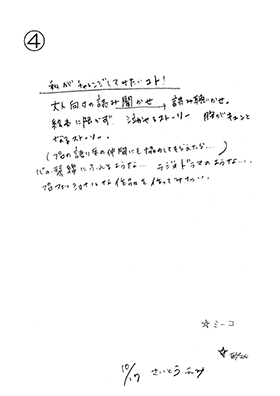 ④
私がチャレンジしてみたいコト!
大人向けの読み聞かせ → 読み聴かせ。
絵本に限かず 泣かせるストーリー 胸がキュンと
なるストーリー。
(プロの語り手の仲間にも協力してもらえたら…)
心の琴線にふれるような… ラジオドラマのような…。
プロフェッショナルな作品を作ってみたい。
☆ミーコ
☆
10/17 さいとう ふみ